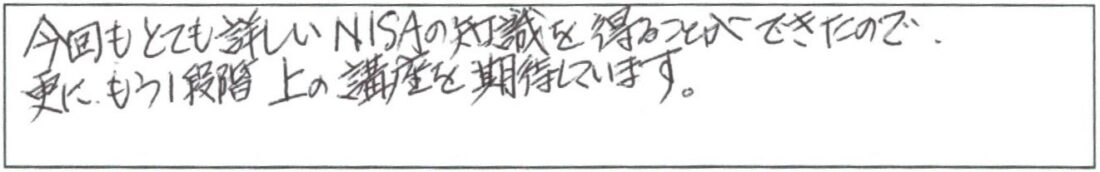 今回もとても詳しいNISAの知識を得ることができたので、
更に、もう1段階上の講座を期待しています。